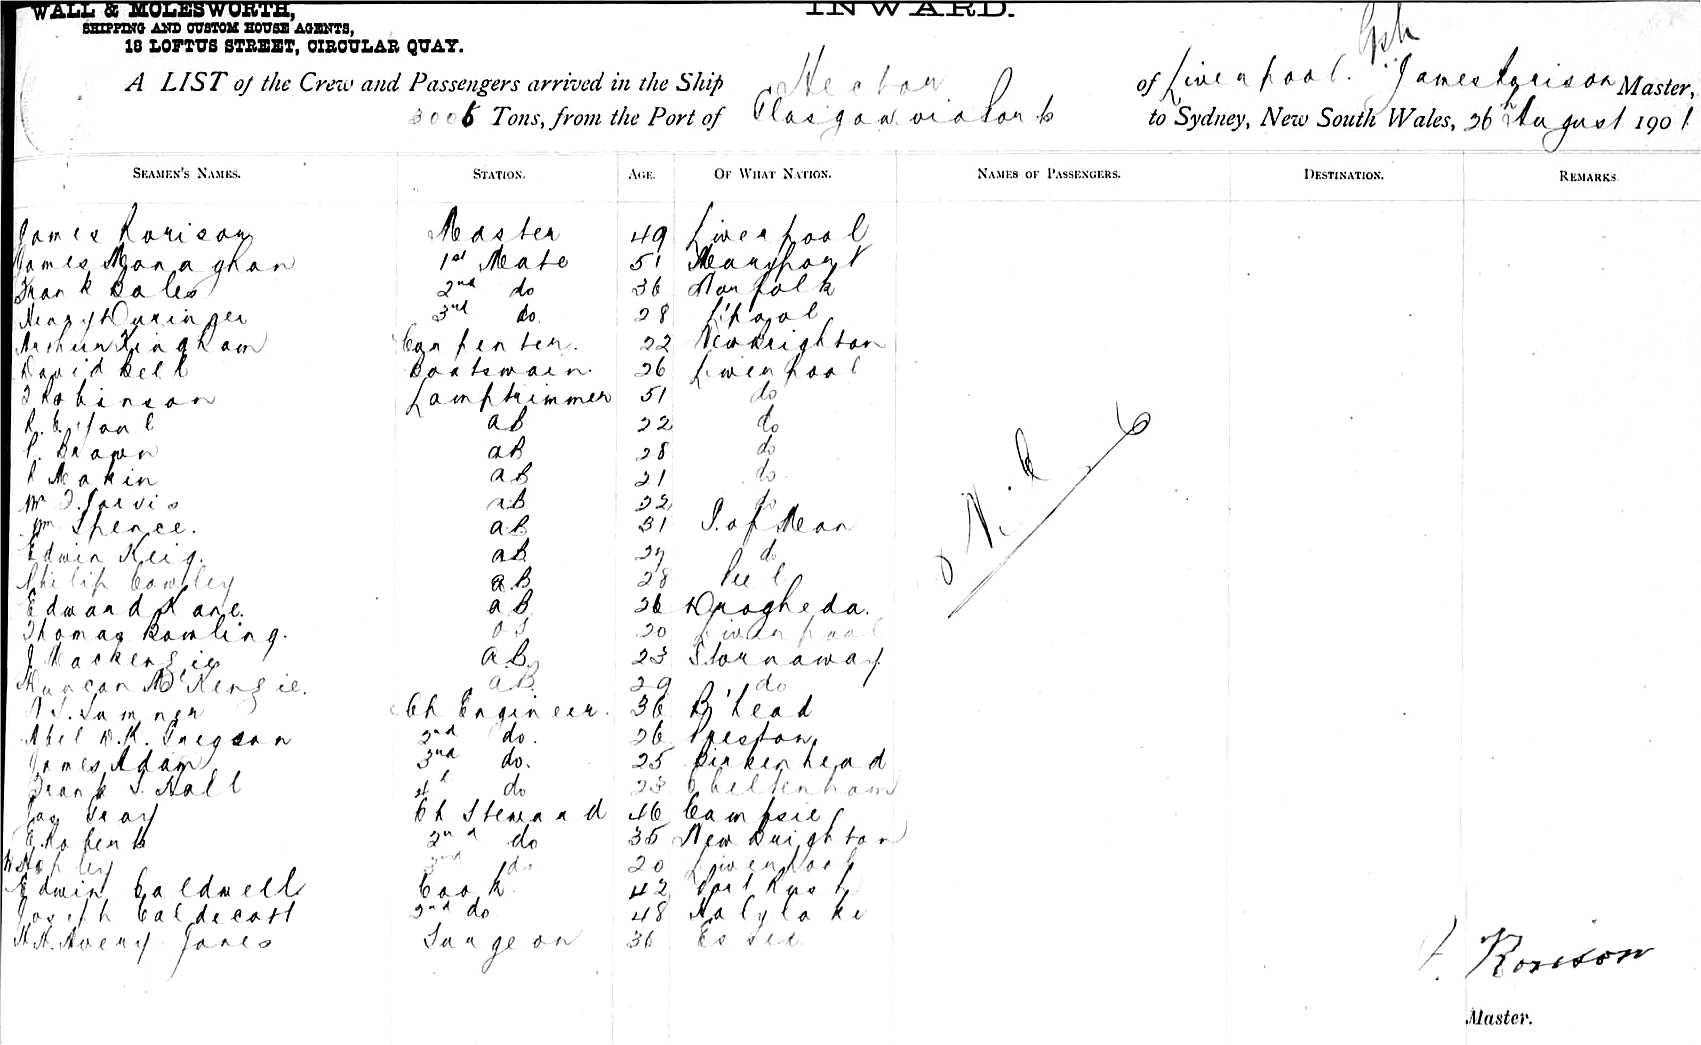 WALL & MOLESWORTH,
INWARD.
SHIPPING AND CUSTOM HOUSE AGENTS,
18 LOFTUS STREET, CIRCULAR QUAY.
A LIST of the Crew and Passengers arrived in the Ship Hector of Liverpool. James Rorison Master,
Tons, from the Port of Glasgow via Ports to Sydney, New South Wales, 26th August 1901
SEAMEN'S NAMES. STATION. AGE. OF WHAT NATION. NAMES OF PASSENGERS. DESTINATION. REMARKS
James Rorison Master 49 Liverpool
James Monaghan 1st Mate 51 Maryport
Frank Bales 2nd do 36 Norfolk
Henry Duringer 3rd do. 28 L'pool
Arthur Kingham Carpenter. 22 New Brighton
David Bell Boatswain. 26 Liverpool
T Robinson Lamptrimmer 51 do
AB 22 do
P. Brown AB 28 do
Makin AB 21 do
Wm T. Jarvis AB 22 do
Wm Spence. AB 31 I. of Man
Edwin Keig. AB 27 do
Philip Cowley AB 28 Peel
Edward Kane. AB 26 Drogheda.
Thomas Bowling. OS 20 Liverpool
J Mackenzie AB. 23 Stornaway
Duncan McKenzie. AB 29 do
Sumner Ch Engineer. 36 B'head
Abel W.K. Gregson 2nd do. 26 Preston
James Adam 3rd do. 25 Birkenhead
Frank S. Hall 4th do 23 Cheltenham
Jas Gray Ch Steward 46 Campsie
E. Roberts 2nd do 35 New Brighton
3rd do 20 Liverpool
Edwin Caldwell Cook 42 Port Rush
Joseph Caldecott 2nd do 48 Holylake
H. Avery Jones Surgeon 36 Essex
Nil
J. Rorison
Master.